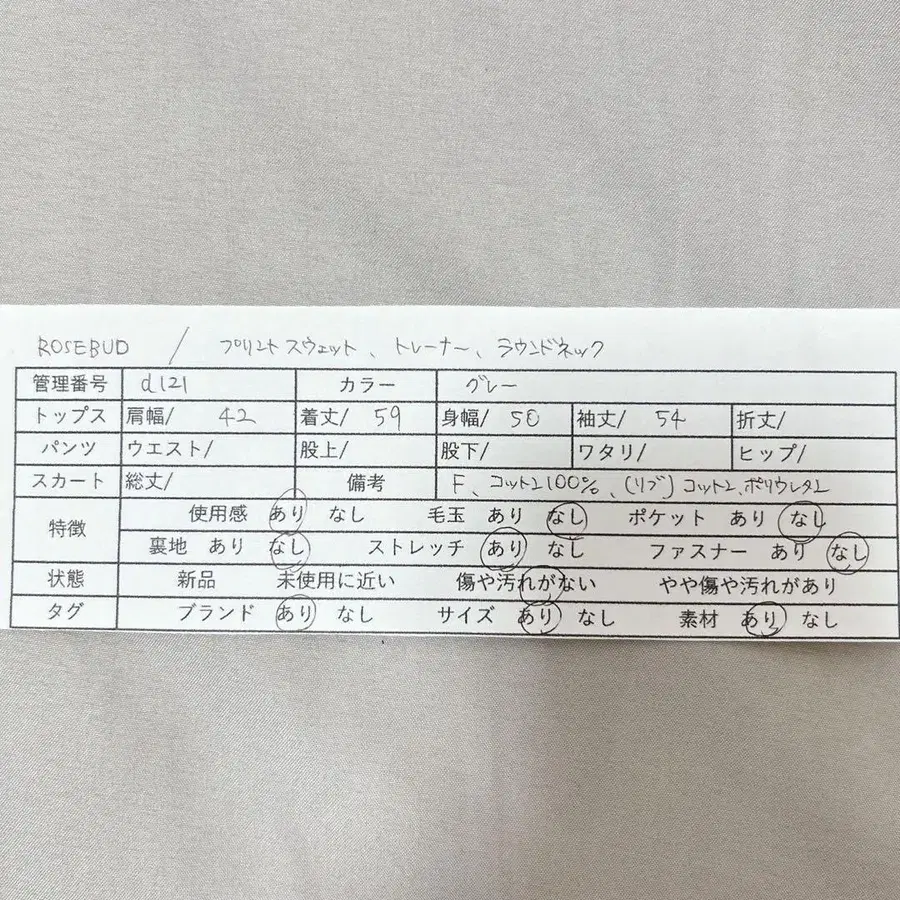 ROSEBUD / プリントスウェット、トレーナー、ラウンドネック
管理番号 d121 カラー グレー
トップス 肩幅/ 42 着丈/ 59 身幅/ 50 袖丈/ 54 折丈/
パンツ ウエスト/ 股上/ 股下/ ワタリ/ ヒップ/
スカート 総丈/ 備考 F、コットン100%、(リブ)コットン、ポリウレタン
特徴 使用感 あり なし 毛玉 あり なし ポケット あり なし
裏地 あり なし ストレッチ あり なし ファスナー あり なし
状態 新品 未使用に近い 傷や汚れがない やや傷や汚れがあり
タグ ブランド あり なし サイズ あり なし 素材 あり なし